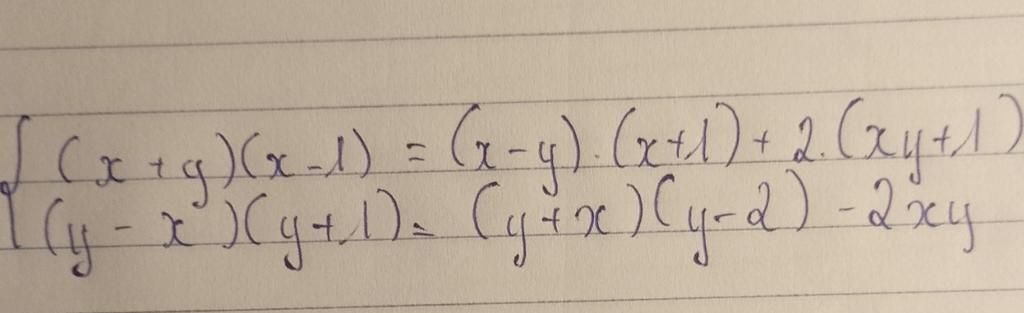 { (x + y)(x - 1) = (x - y) . (x + 1) + 2 . (xy + 1)
(y - x)(y + 1) = (y + x)(y - 2) - 2xy